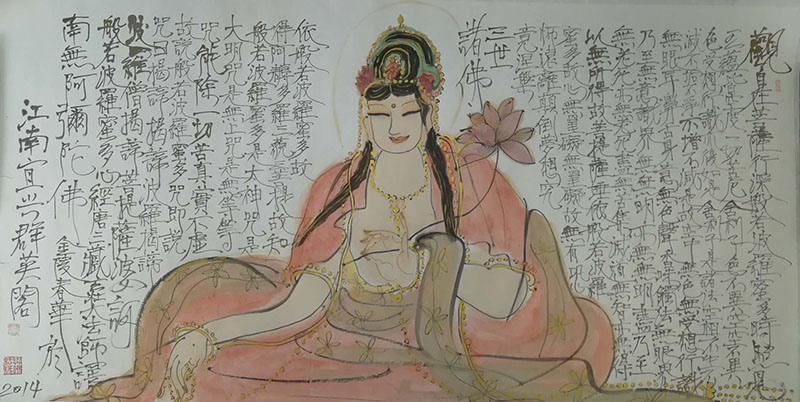 觀自在菩薩行深般若波羅蜜多時照見
五蘊皆空度一切苦厄舍利子色不異空空不異
色受想行識亦復如是舍利子是諸法空相不生
滅不垢不淨不增不減是故空中無色無受想行識
無眼耳鼻舌身意無色聲香味觸法無眼界
乃至無意識界無無明亦無無明盡乃至
無老死亦無老死盡無苦集滅道無智亦無得
以無所得故菩提薩埵依般若波羅
蜜多故心無罣礙無罣礙故無有恐
怖遠離顛倒夢想究
竟涅槃
三世
諸佛
依般若波羅蜜多故
得阿耨多羅三藐三菩提故知
般若波羅蜜多是大神咒是
大明咒是無上咒是無等等
咒能除一切苦真實不虛
故說般若波羅蜜多咒即說
咒曰揭諦揭諦波羅揭諦
波羅僧揭諦菩提薩婆訶
般若波羅蜜多心經唐三藏玄奘法師譯
南無阿彌陀佛 金陵春華於
江南宜興群英閣
2014